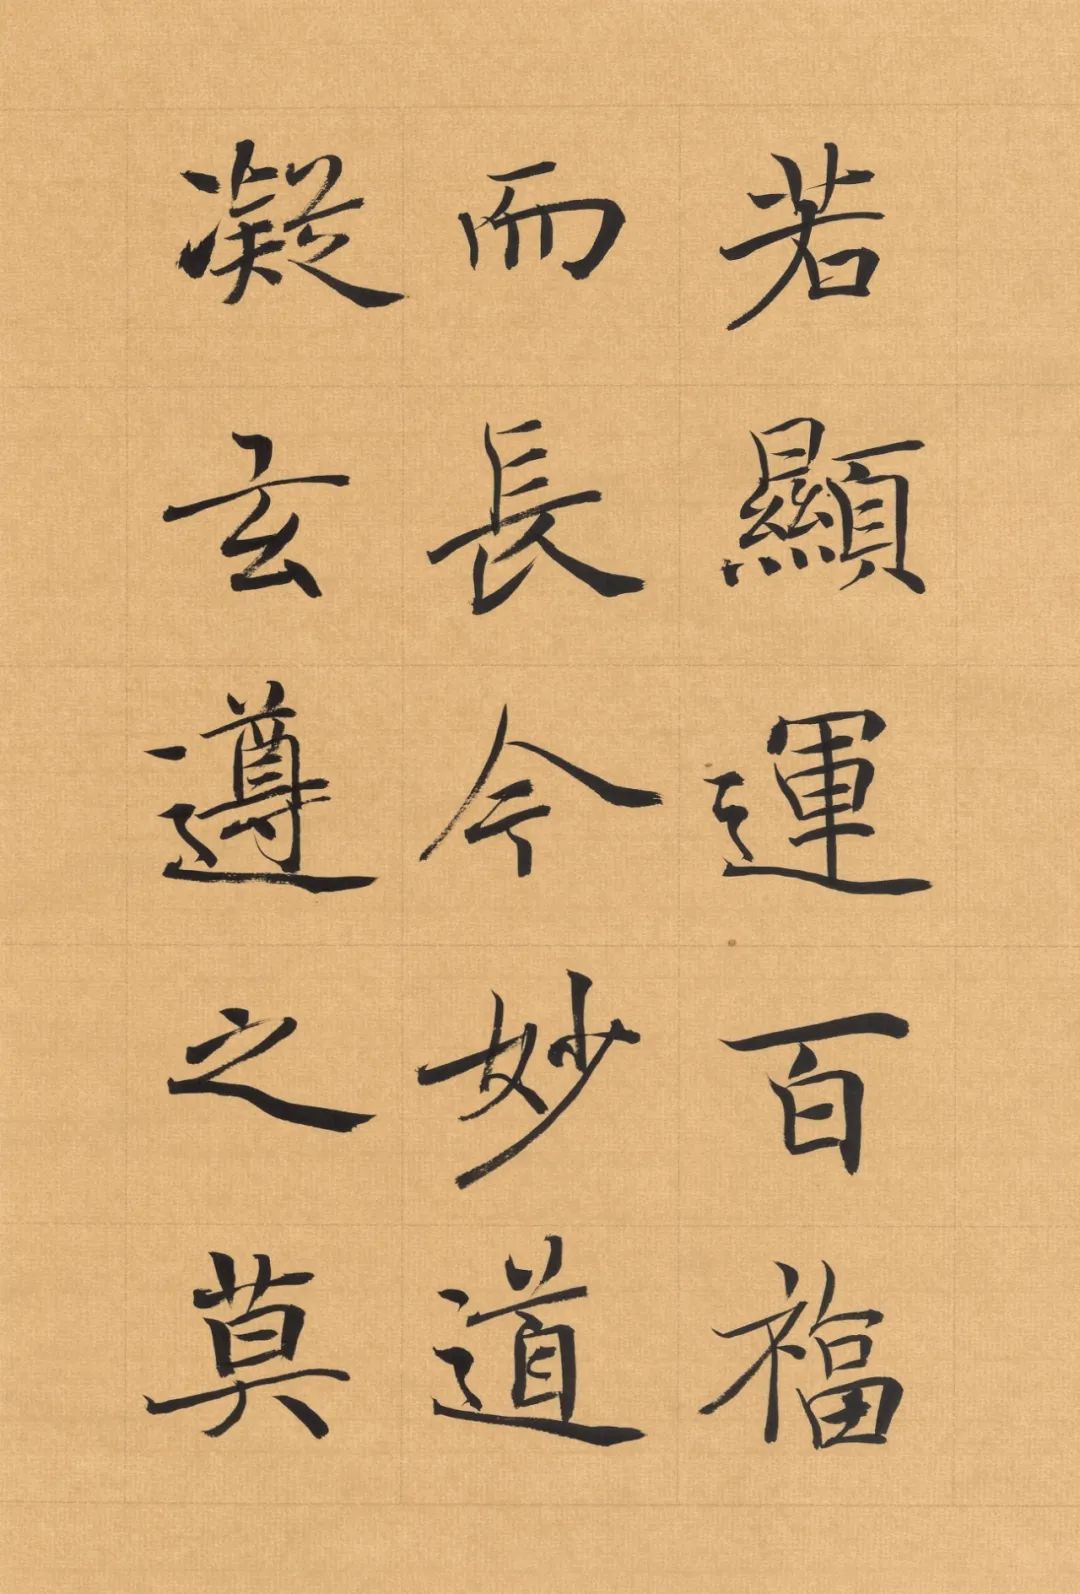 若顯運百福
而長今妙道
凝玄遵之莫